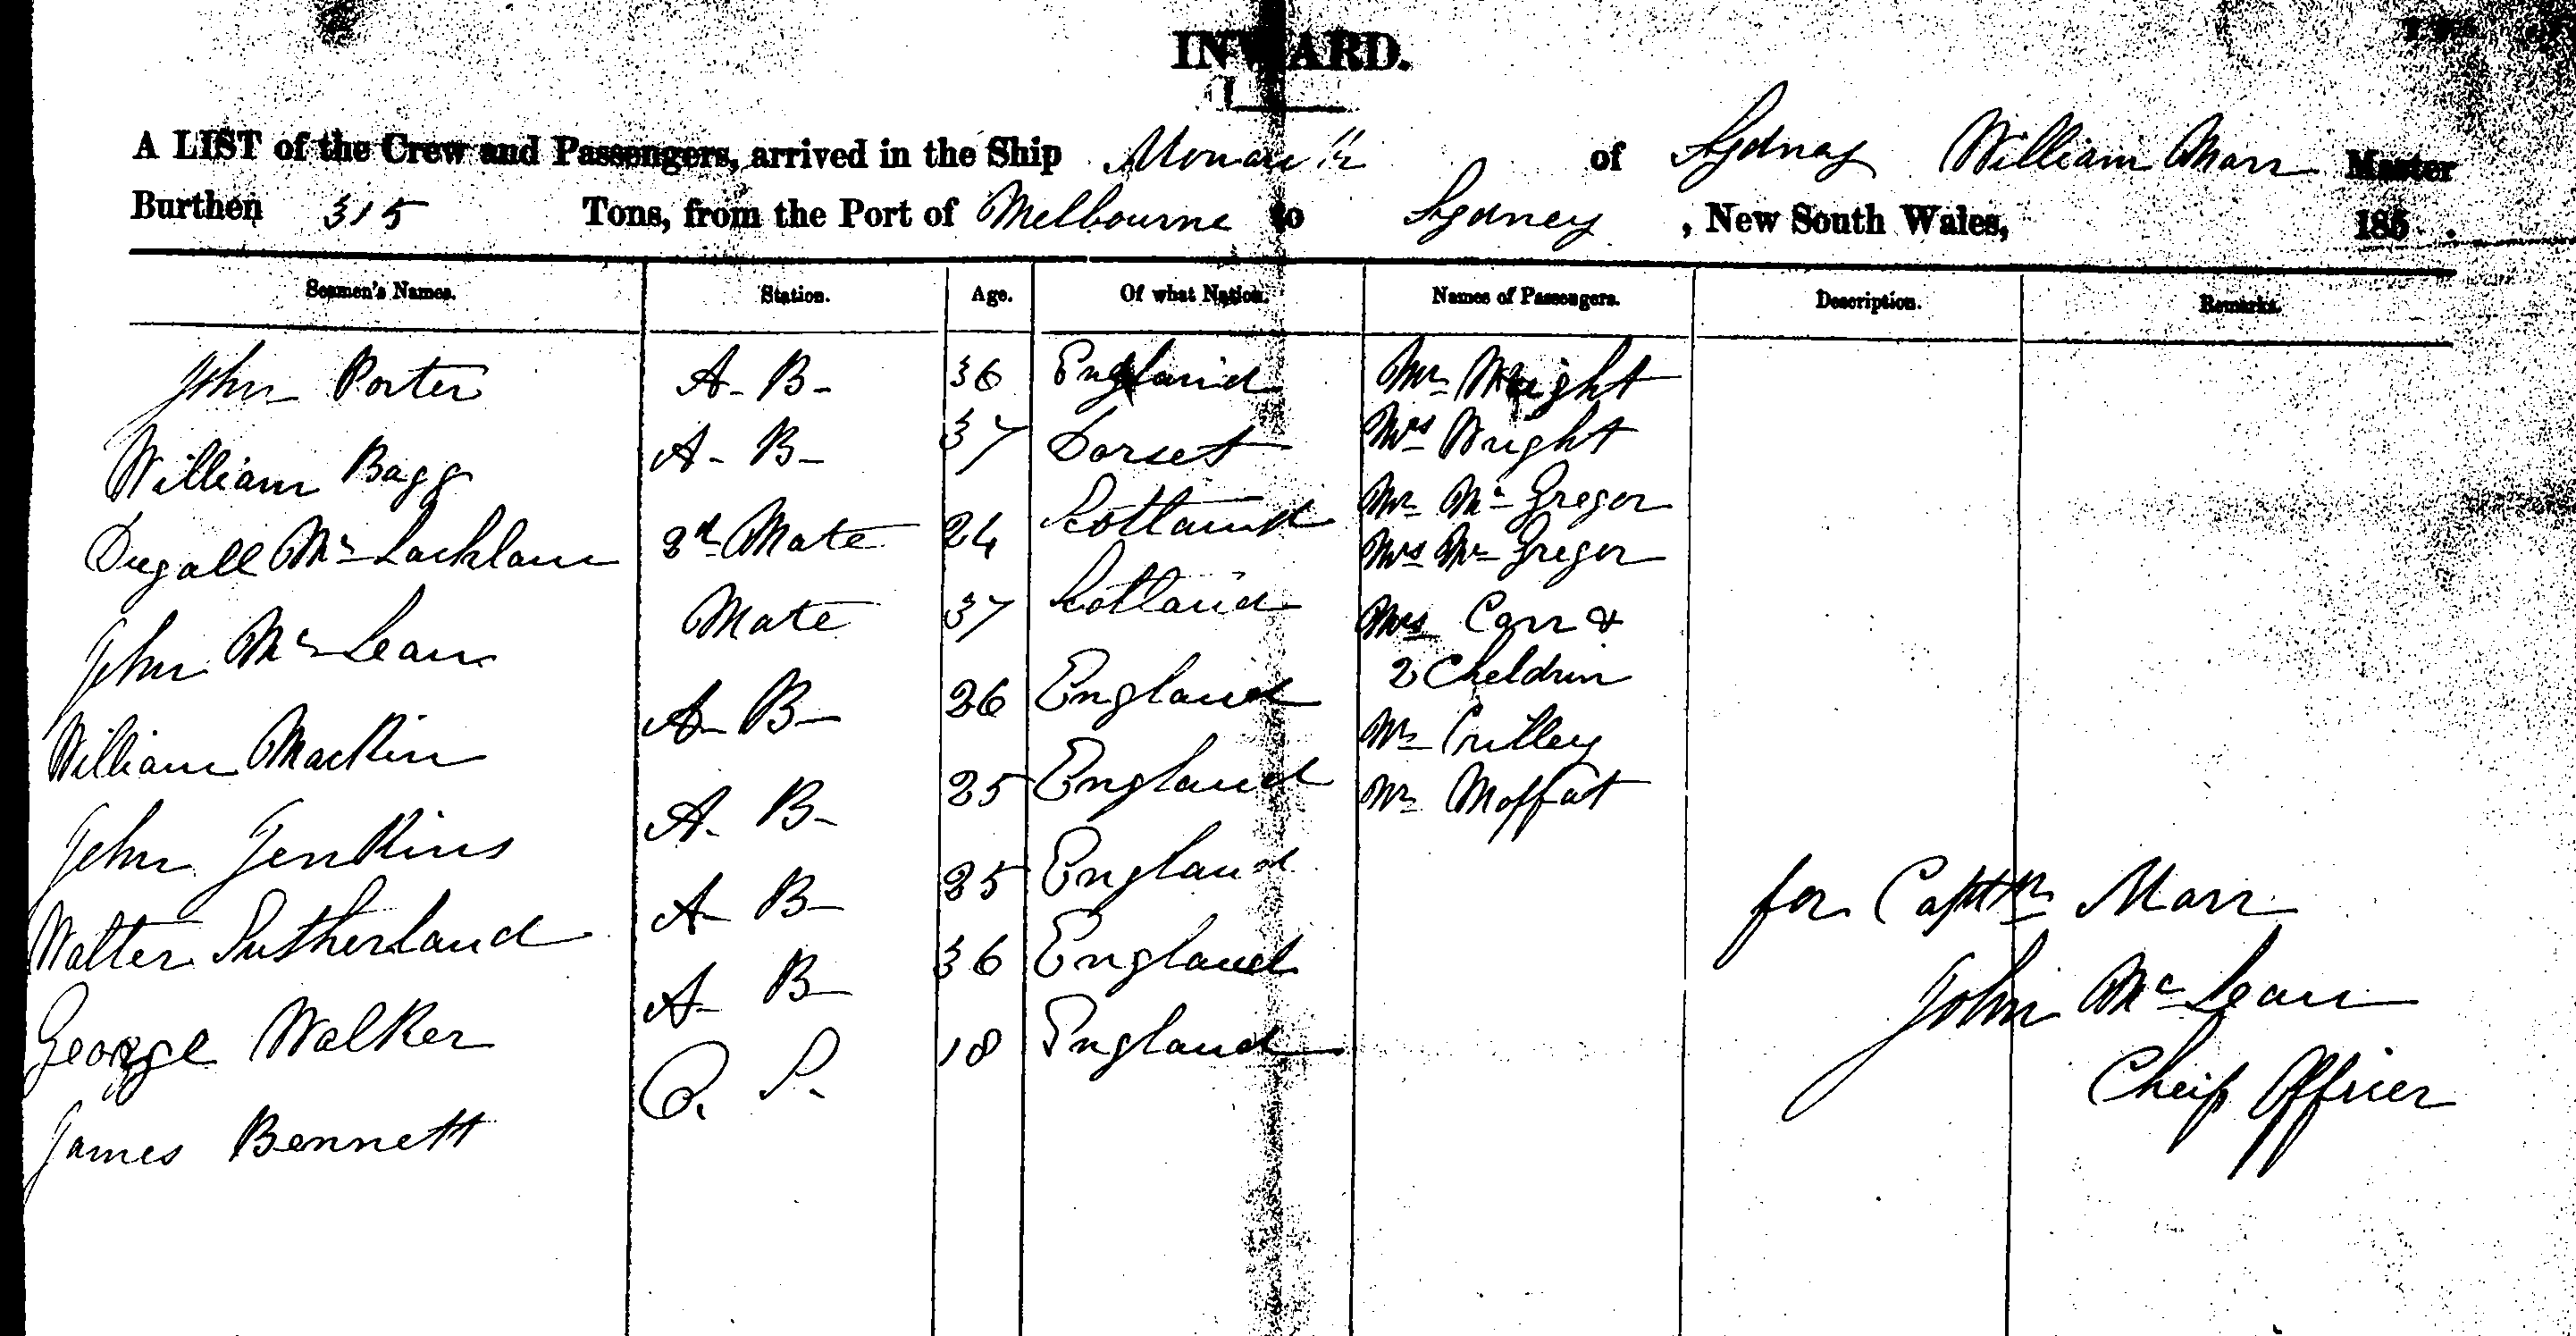 INWARD.
A LIST of the Crew and Passengers, arrived in the Ship Monarch of Sydney William Marr Master
Burthen 315 Tons, from the Port of Melbourne to Sydney, New South Wales, 185 .
Seamen's Names. Station. Age. Of what Nation. Names of Passengers. Description. Remarks.
John Porter A-B- 36 England Mr Wright
William Bagg A-B- 37 Dorset Mrs Wright
Dugall Mc Lachlan 2d Mate 24 Scotland Mr Mc Gregor
Mrs Mc Gregor
John Mc Lean Mate 37 Scotland Mrs Carr &
2 Cheldrin
William Mackin A-B- 26 England Mr
John Jenkins A-B- 25 England Mr Moffat
Walter Sutherland A-B- 25 England
George Walker A-B- 36 England
James Bennett O.S. 18 England
for Captn Marr
John Mc Lean
Cheif Officer